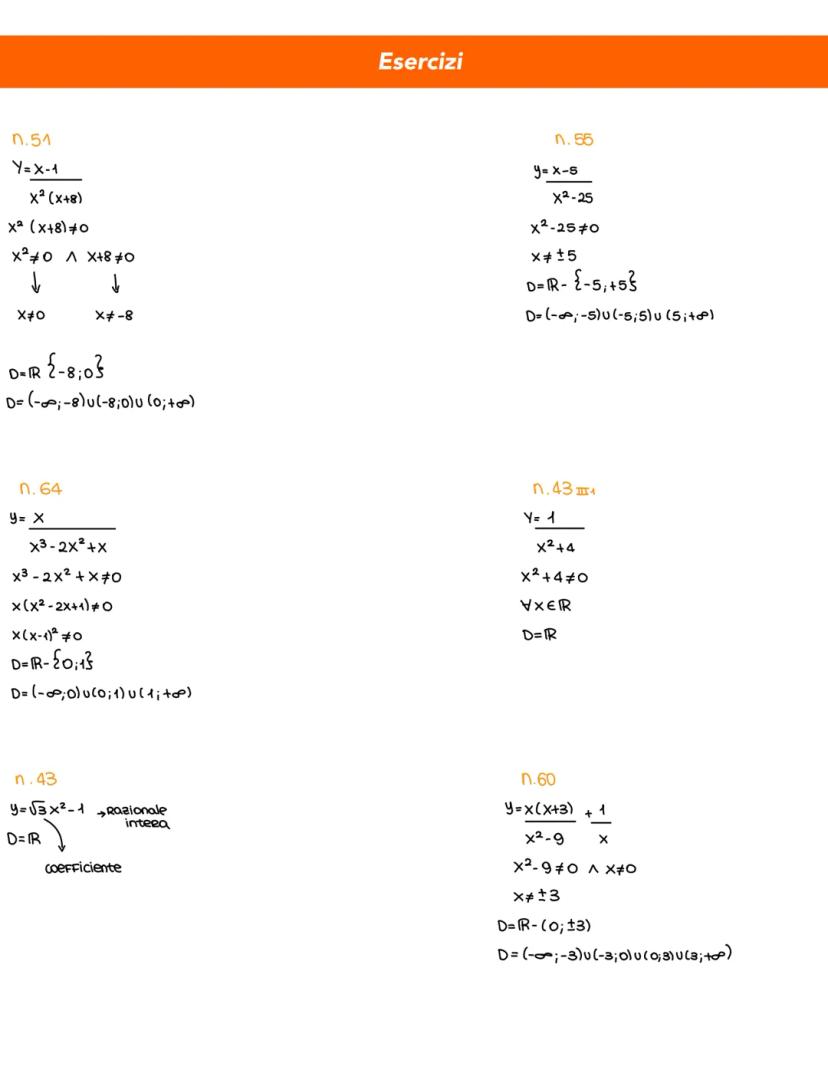 Esercizi
n.51
Y= x-1
x² (x+8)
x² (x+8)≠0
x²≠0 ∧ x+8≠0
↓ ↓
x≠0 x≠-8
D=ℝ {-8;0}
D= (-∞;-8)∪(-8;0)∪(0;+∞)
n.55
y= x-5
x²-25
x²-25≠0
x≠±5
D=ℝ- {-5;+5}
D=(-∞;-5)∪(-5;5)∪(5;+∞)
n.64
y= x
x³-2x²+x
x³-2x²+x≠0
x(x²-2x+1)≠0
x(x-1)²≠0
D=ℝ-{0;1}
D=(-∞;0)∪(0;1)∪(1;+∞)
n.43 III1
Y= 1
x²+4
x²+4≠0
∀x∈ℝ
D=ℝ
n.43
y=√3x²-1 →Razionale
intera
D=ℝ
coefficiente
n.60
y=x(x+3) + 1
x²-9 x
x²-9≠0 ∧ x≠0
x≠±3
D=ℝ-(0;±3)
D=(-∞;-3)∪(-3;0)∪(0;3)∪(3;+∞)